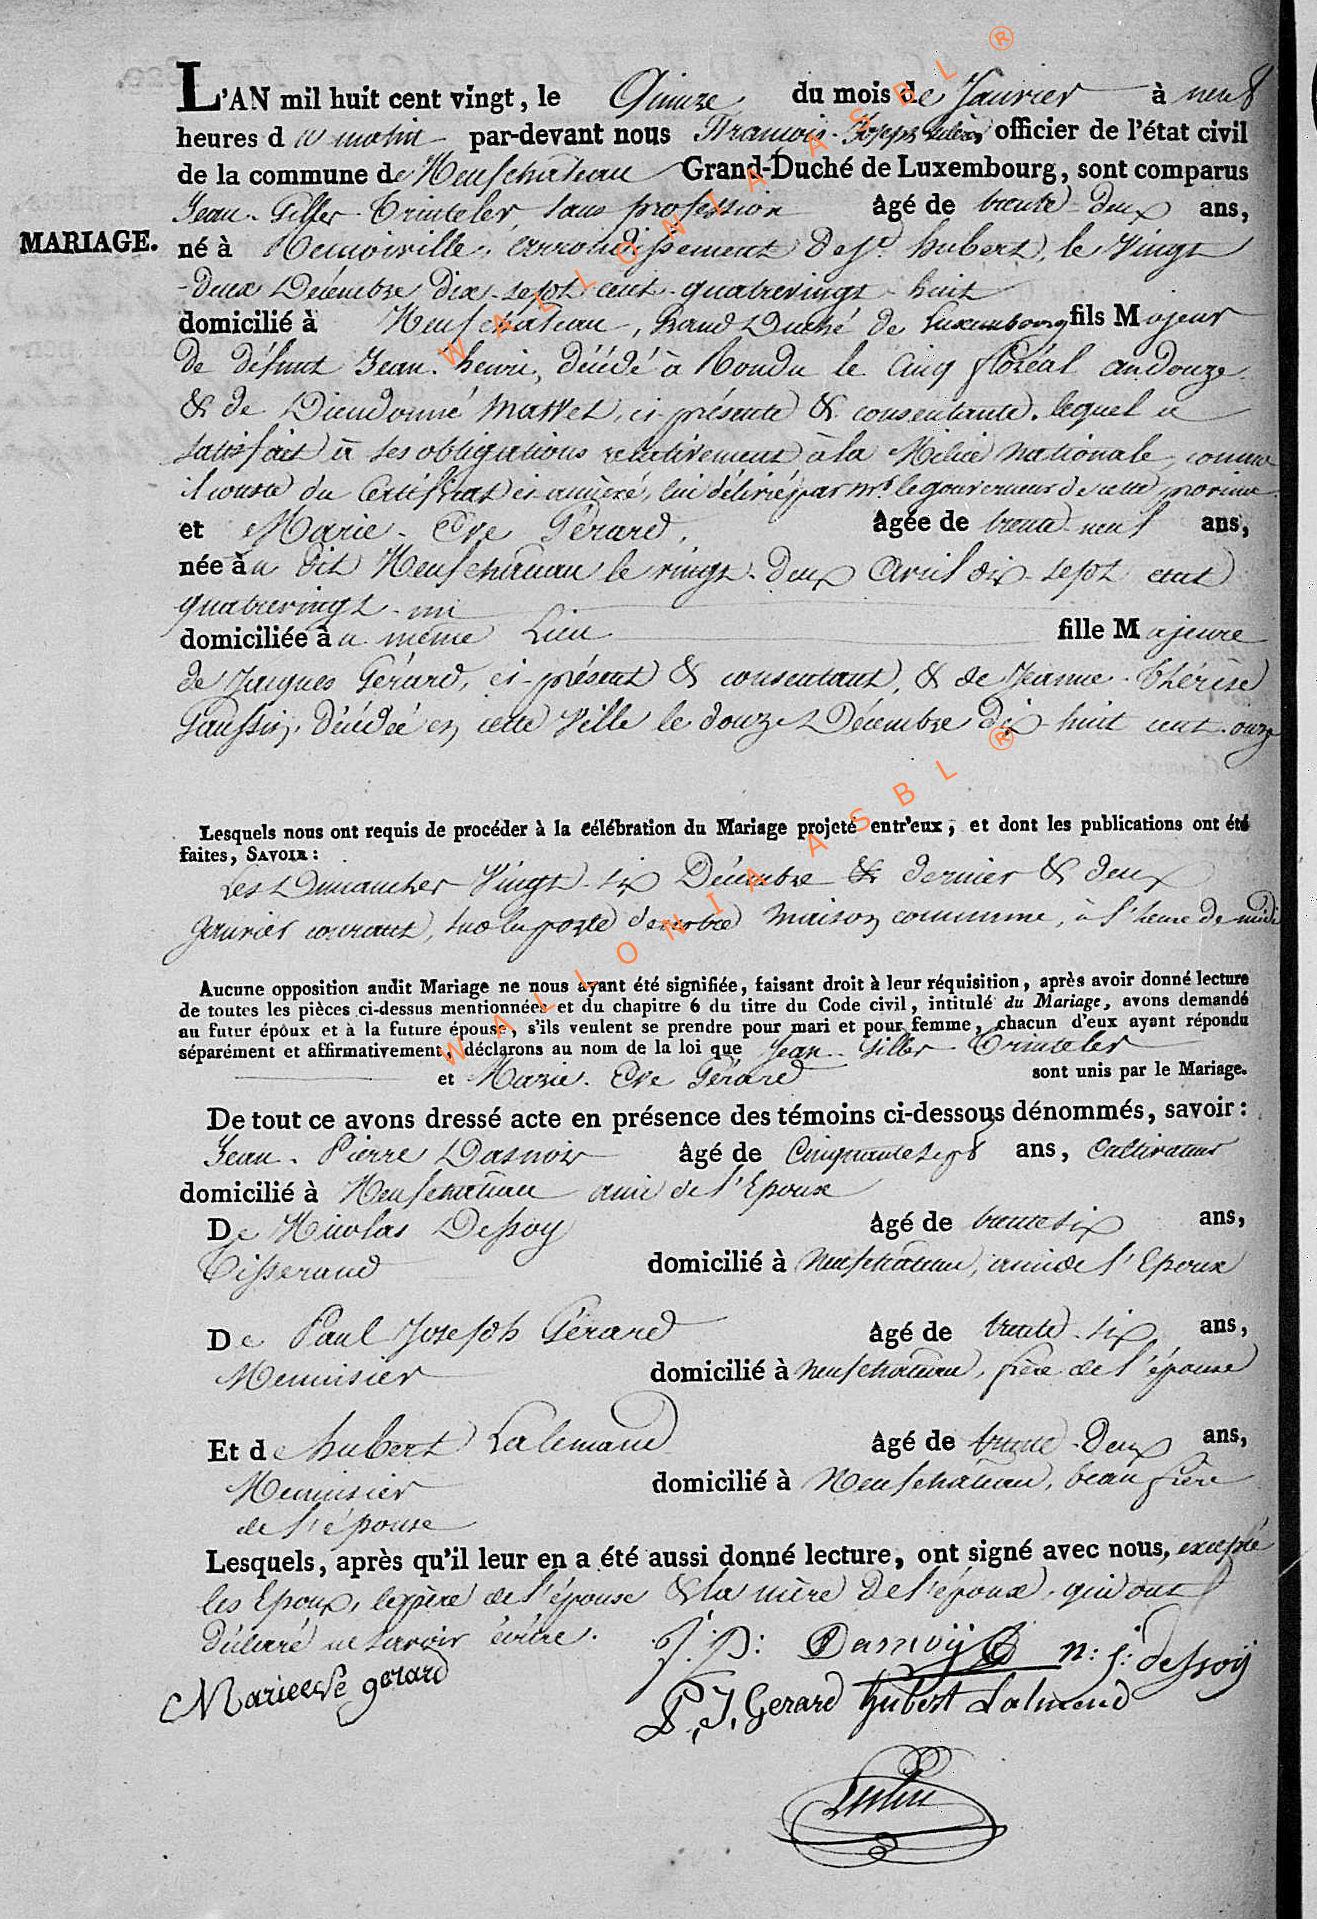 L'AN mil huit cent vingt, le Quinze du mois de Janvier à neuf
heures du matin par-devant nous François-Joseph officier de l'état civil
de la commune de Neufchateau Grand-Duché de Luxembourg, sont comparus
Jean-Gilles-Trinteler sans profession âgé de trente-deux ans,
MARIAGE.
né à Remoiville, arrondissement de St. hubert, le Vingt
-deux Décembre dix-sept cent-quatrevingt-huit
domicilié à Neufchateau, Grand Duché de Luxembourg fils Majeur
de défunt Jean-henri, décédé à le Cinq floréal an douze
& de Dieudonné Masset, ci-présente & consentante. lequel a
satisfait à ses obligations relativement à la Milice nationale, comme
il conste du Certificat ci annexé, lui délivré par mr. le gouverneur de cette province
et Marie-Eve Gérard, âgée de trente-neuf ans,
née à u dit Neufchateau le vingt-deux Avril dix-sept cent
quatrevingt-un
domiciliée à u même Lieu fille Majeure
de Jacques Gérard, ci-présent & consentant, & de Jeanne-thérèse
Gaussin, décédée en cette Ville le douze Décembre dix-huit cent-onze
Lesquels nous ont requis de procéder à la célébration du Mariage projeté entr'eux, et dont les publications ont été
faites, SAVOIR:
Les Dimanches Vingt-six Décembre & dernier & deux
Janvier courant, sur la porte de notre Maison commune, à l'heure de midi
Aucune opposition audit Mariage ne nous ayant été signifiée, faisant droit à leur réquisition, après avoir donné lecture
de toutes les pièces ci-dessus mentionnées et du chapitre 6 du titre du Code civil, intitulé du Mariage, avons demandé
au futur époux et à la future épouse, s'ils veulent se prendre pour mari et pour femme, chacun d'eux ayant répondu
séparément et affirmativement, déclarons au nom de la loi que Jean-Gilles-Trinteler
et Marie-Eve Gérard sont unis par le Mariage.
De tout ce avons dressé acte en présence des témoins ci-dessous dénommés, savoir:
Jean-Pierre Dasnois âgé de Cinquante sept ans, Cultivateur
domicilié à Neufchateau ami de l'Epoux
De Nicolas Dessoy âgé de trente six ans,
Tisserand domicilié à Neufchateau, ami de l'Epoux
De Paul Joseph Gérard âgé de trente-six ans,
Menuisier domicilié à Neufchateau, frère de l'épouse
Et de hubert Lalemand âgé de trente-Deux ans,
Menuisier domicilié à Neufchateau, beau frère
de l'épouse
Lesquels, après qu'il leur en a été aussi donné lecture, ont signé avec nous, excepté
les Epoux, le père de l'épouse & la mère de l'époux, qui ont
déclaré ne savoir écrire.
J: P: Danvoy n: j: dessoy
Marie eve gerard
P. J. Gerard hubert Lalmend
WALLONIA ASBL ®
WALLONIA ASBL ®